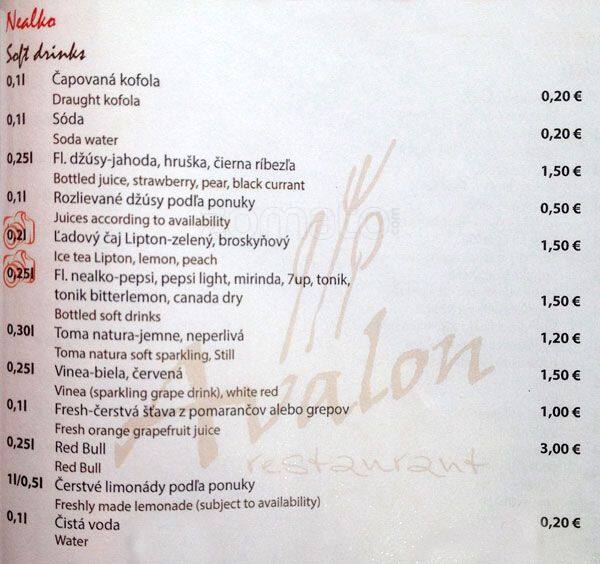 Nealko
Soft drinks
0,1l Čapovaná kofola
Draught kofola 0,20 €
0,1l Sóda
Soda water 0,20 €
0,25l Fl. džúsy-jahoda, hruška, čierna ríbezľa
Bottled juice, strawberry, pear, black currant 1,50 €
0,1l Rozlievané džúsy podľa ponuky 0,50 €
Juices according to availability
0,2l Ľadový čaj Lipton-zelený, broskyňový 1,50 €
Ice tea Lipton, lemon, peach
0,25l Fl. nealko-pepsi, pepsi light, mirinda, 7up, tonik,
tonik bitterlemon, canada dry 1,50 €
Bottled soft drinks
0,30l Toma natura-jemne, neperlivá 1,20 €
Toma natura soft sparkling, Still
0,25l Vinea-biela, červená 1,50 €
Vinea (sparkling grape drink), white red
0,1l Fresh-čerstvá šťava z pomarančov alebo grepov 1,00 €
Fresh orange grapefruit juice
0,25l Red Bull 3,00 €
Red Bull
1l/0,5l Čerstvé limonády podľa ponuky
Freshly made lemonade (subject to availability)
0,1l Čistá voda 0,20 €
Water
Avalon
restaurant